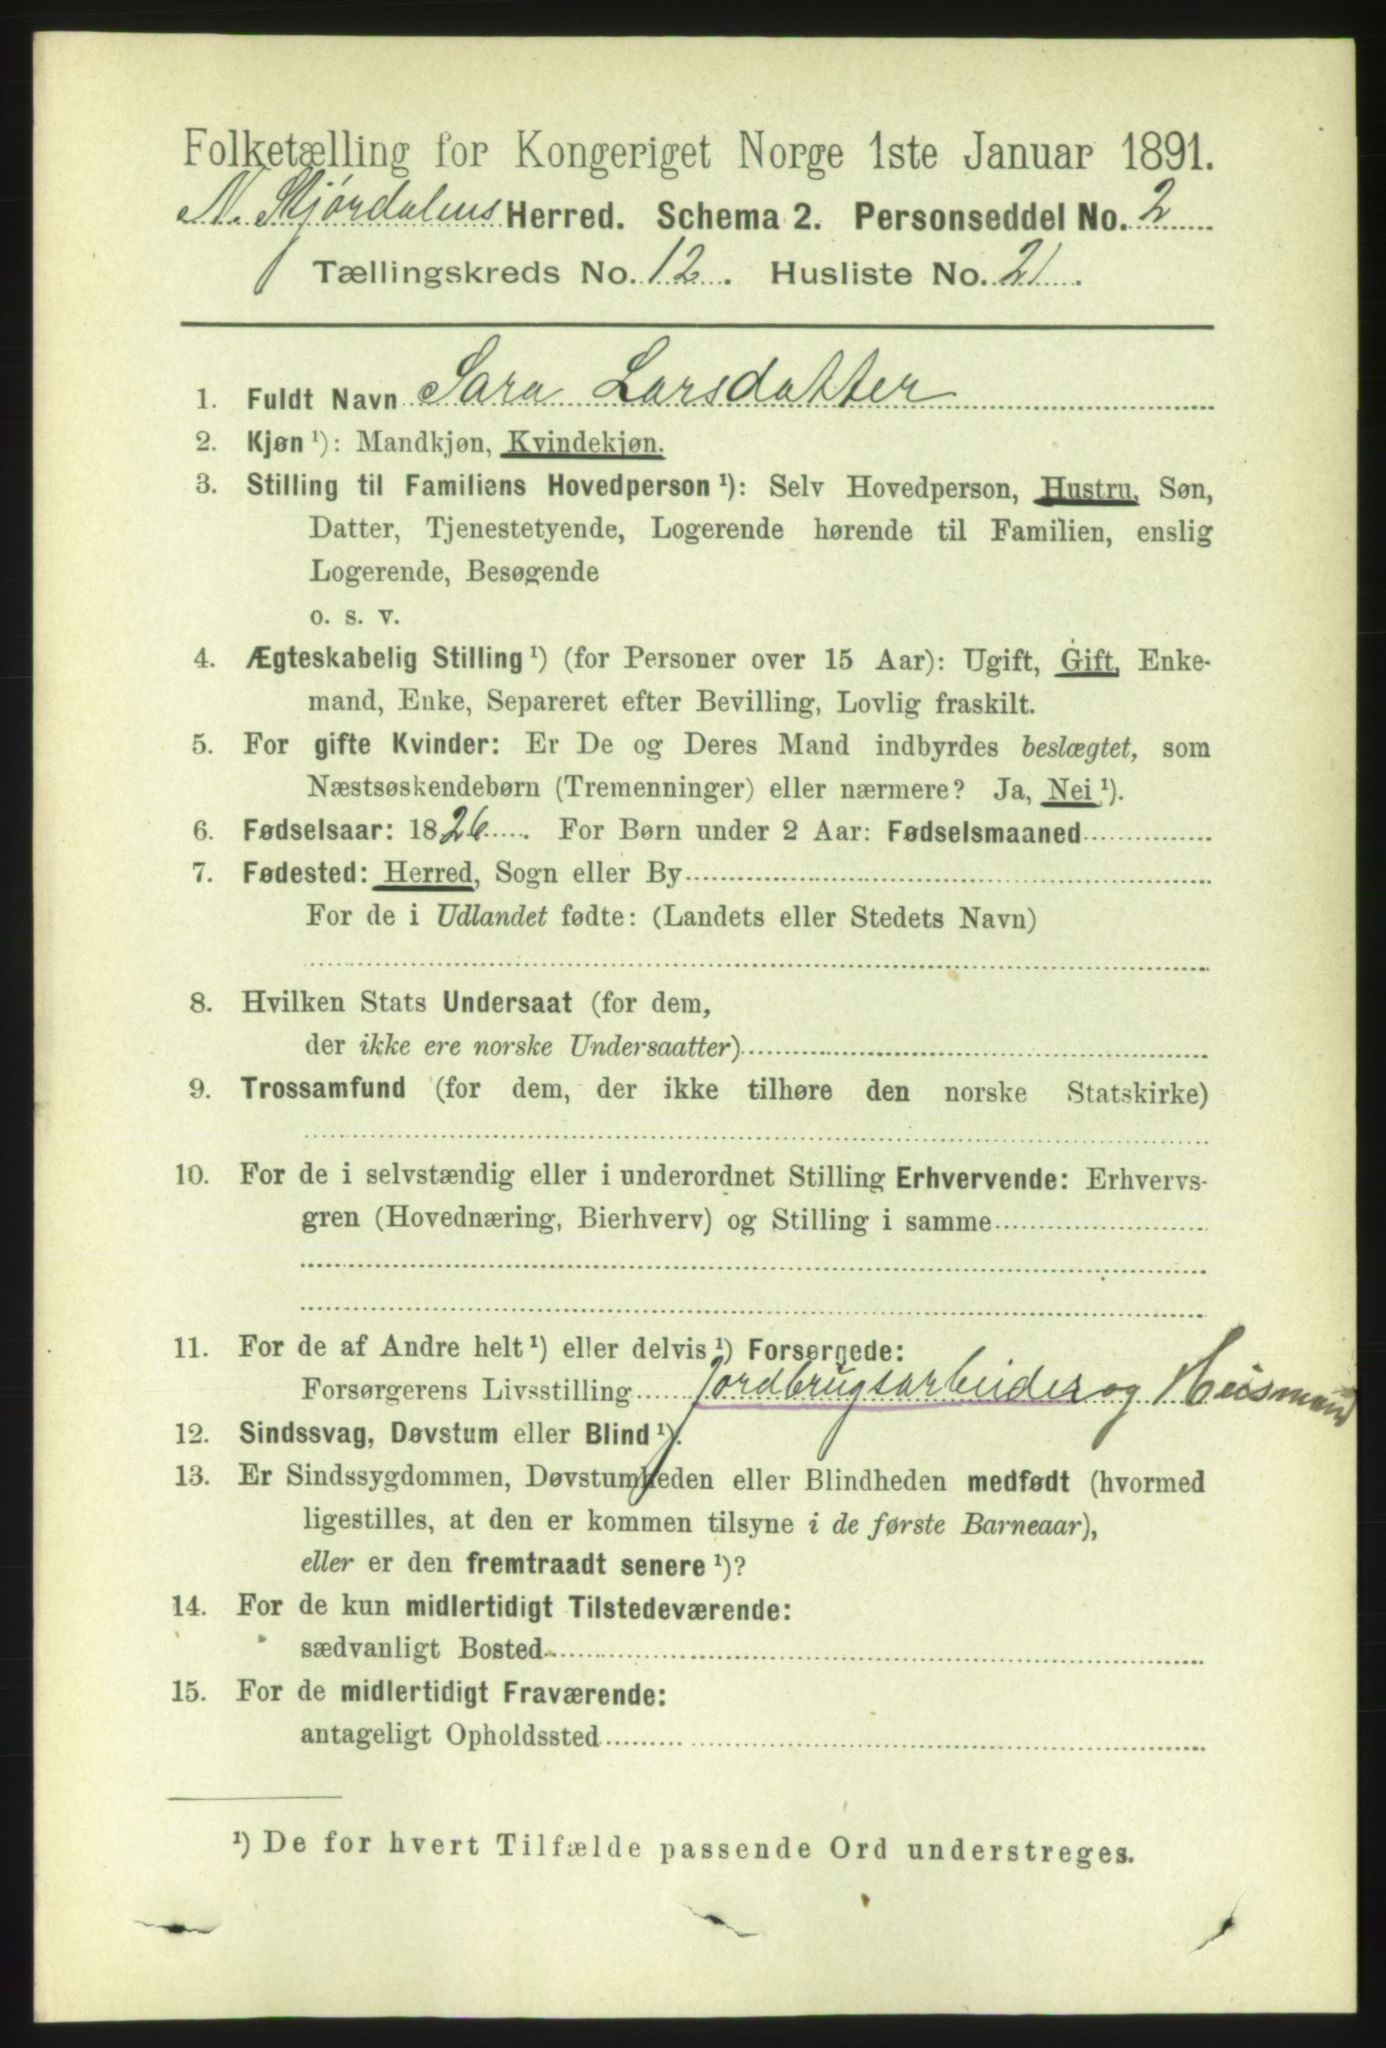 Folketælling for Kongeriget Norge 1ste Januar 1891.
N. Stjørdalens Herred. Schema 2. Personseddel No. 2
Tællingskreds No. 12. Husliste No. 21.
1. Fuldt Navn Sara Larsdatter
2. Kjøn ¹): Mandkjøn, Kvindekjøn.
3. Stilling til Familiens Hovedperson ¹): Selv Hovedperson, Hustru, Søn,
Datter, Tjenestetyende, Logerende hørende til Familien, enslig
Logerende, Besøgende
o. s. v.
4. Ægteskabelig Stilling ¹) (for Personer over 15 Aar): Ugift, Gift, Enke-
mand, Enke, Separeret efter Bevilling, Lovlig fraskilt.
5. For gifte Kvinder: Er De og Deres Mand indbyrdes beslægtet, som
Næstsøskendebørn (Tremenninger) eller nærmere? Ja, Nei ¹).
6. Fødselsaar: 1826. For Børn under 2 Aar: Fødselsmaaned
7. Fødested: Herred, Sogn eller By
For de i Udlandet fødte: (Landets eller Stedets Navn)
8. Hvilken Stats Undersaat (for dem,
der ikke ere norske Undersaatter)
9. Trossamfund (for dem, der ikke tilhøre den norske Statskirke)
10. For de i selvstændig eller i underordnet Stilling Erhvervende: Erhvervs-
gren (Hovednæring, Bierhverv) og Stilling i samme
11. For de af Andre helt ¹) eller delvis ¹) Forsørgede:
Forsørgerens Livsstilling Jordbrugsarbeider og Huusmand
12. Sindssvag, Døvstum eller Blind ¹).
13. Er Sindssygdommen, Døvstumheden eller Blindheden medfødt (hvormed
ligestilles, at den er kommen tilsyne i de første Barneaar),
eller er den fremtraadt senere ¹)?
14. For de kun midlertidigt Tilstedeværende:
sædvanligt Bosted
15. For de midlertidigt Fraværende:
antageligt Opholdssted
¹) De for hvert Tilfælde passende Ord understreges.